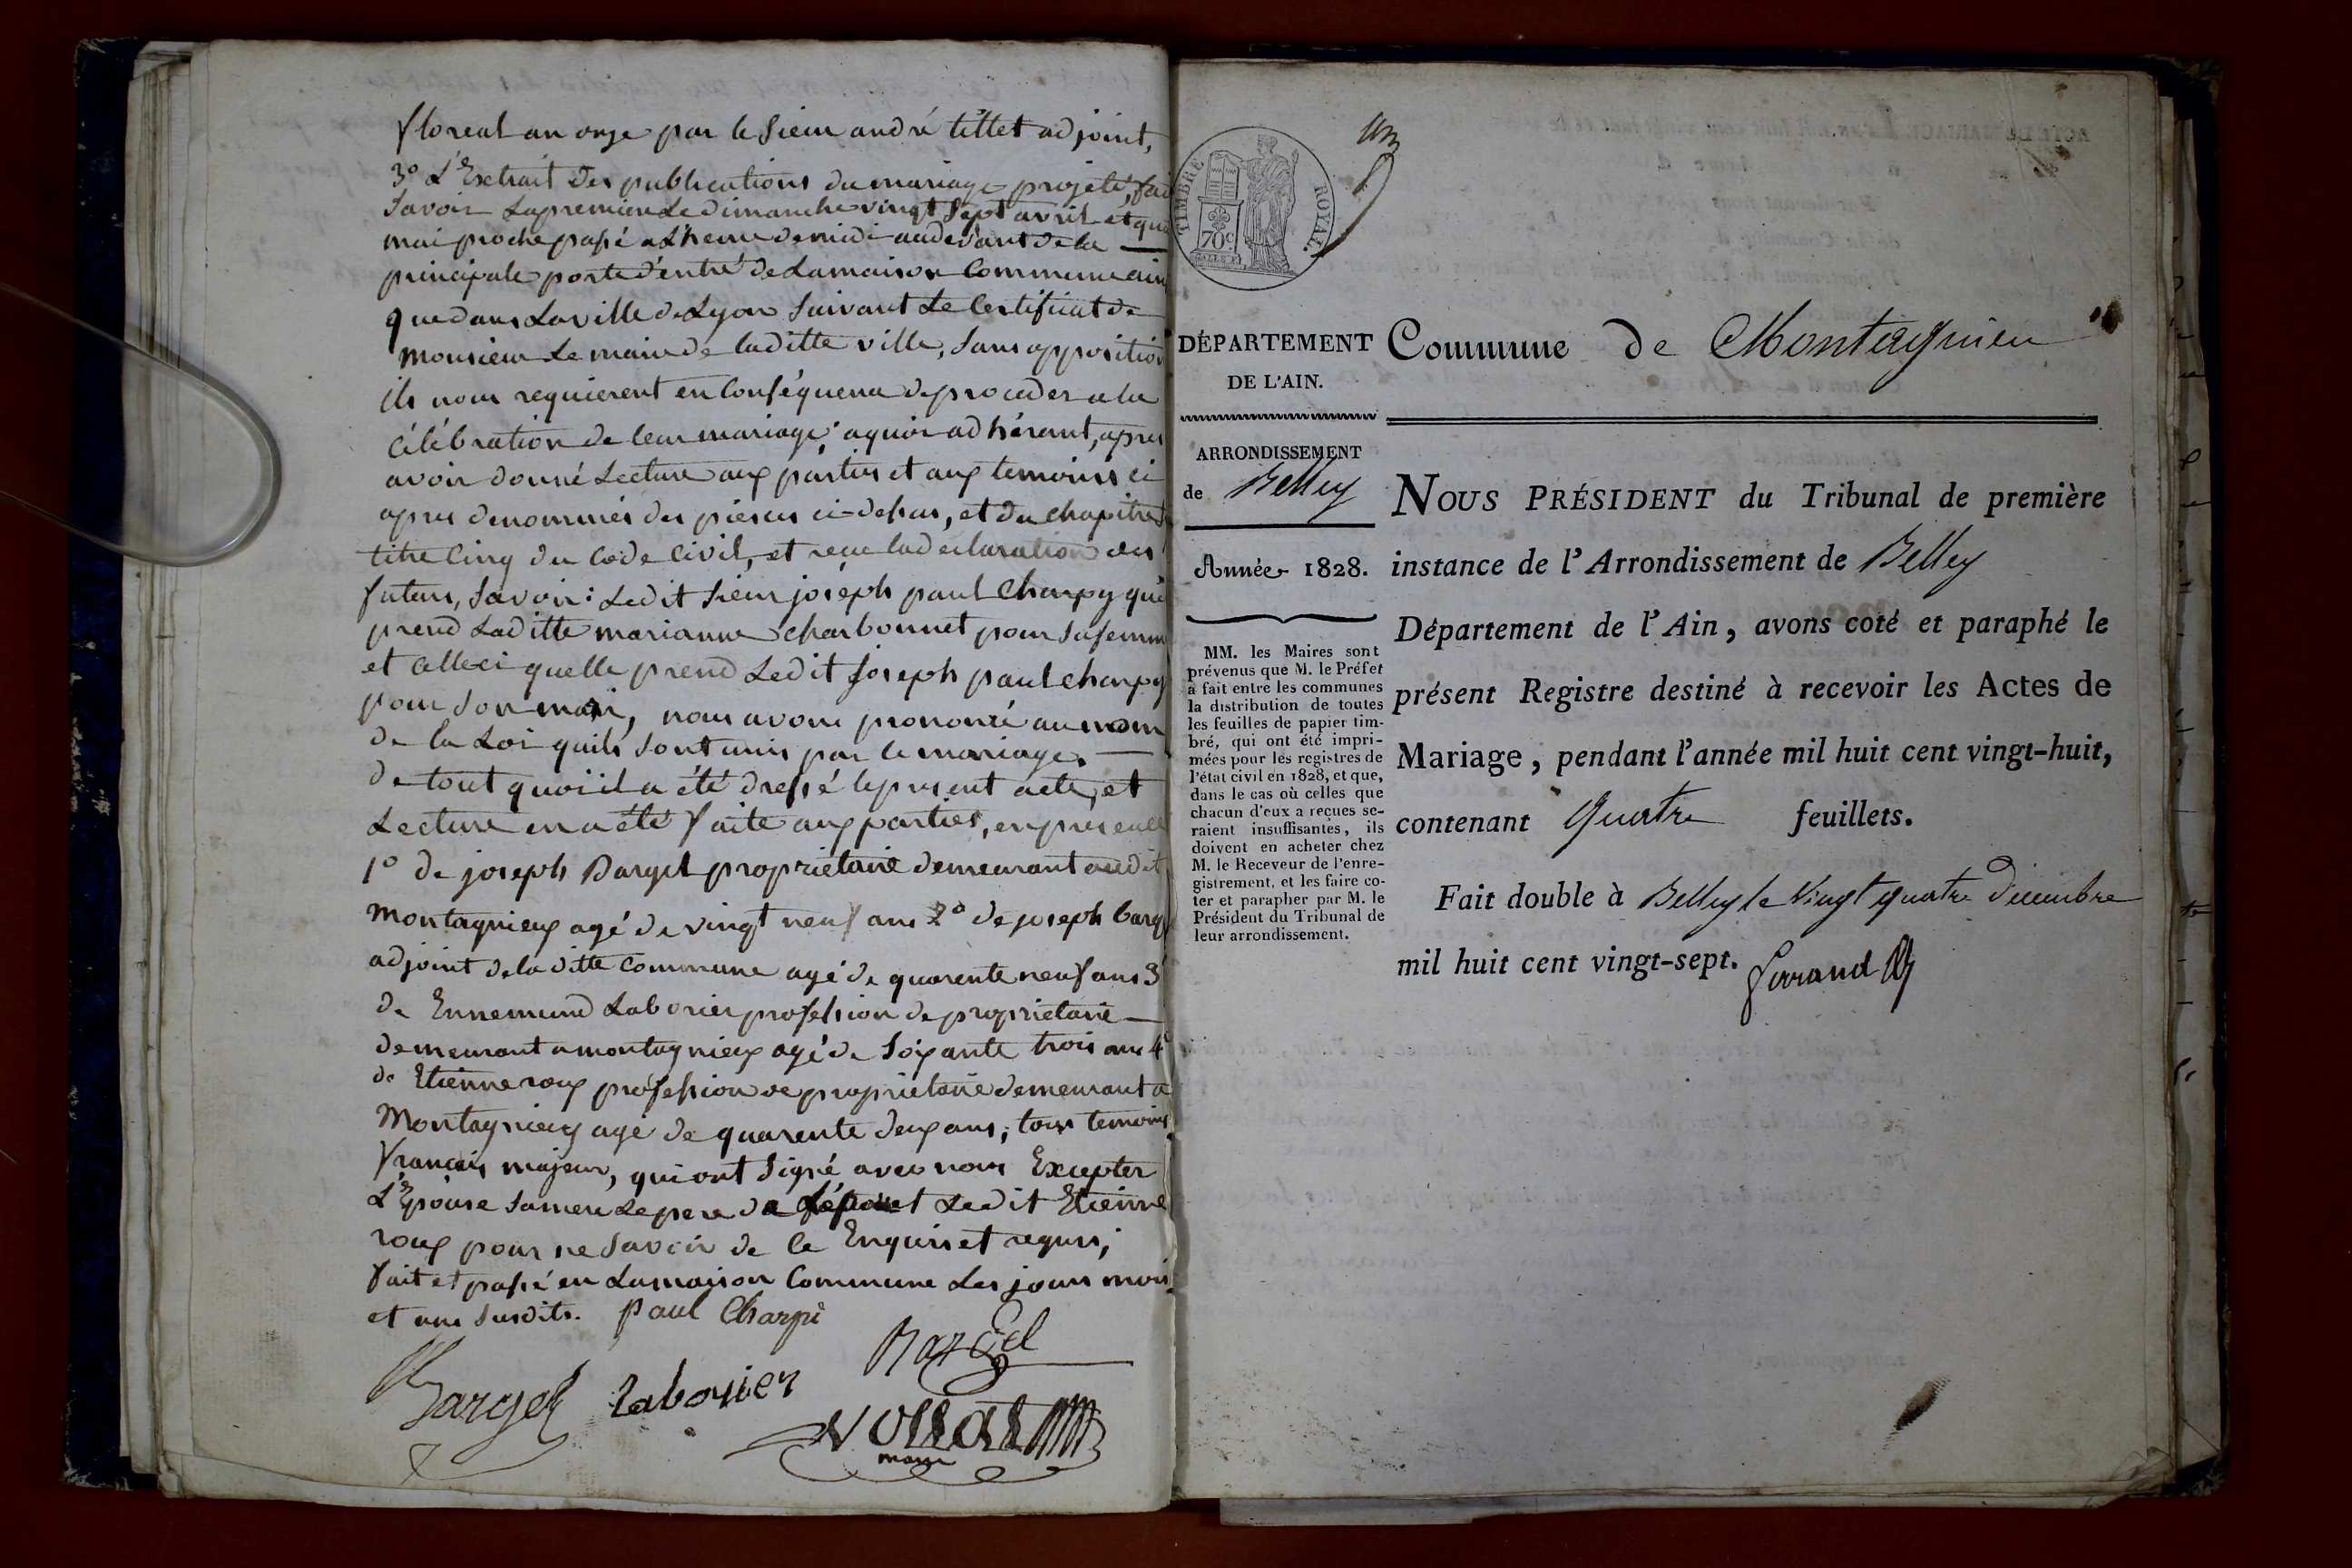 floreal an onze par le Sieur andré tillet adjoint,
3° L'Extrait des publications du mariage projeté, fai
Savoir La premiere Le dimanche vingt Sept avril et qua
mai proche passé a L'heure de midi au devant de la —
principale porte d'entré de La maison Commune ain
que dans La ville de Lyon Suivant Le Certificat de
Monsieur Le maire de laditte ville, Sans opposition
ils nous requierent en Conséquence de proceder a la
Célébration de leur mariage; a quoi adhérant, apres
avoir donné Lecture aux parties et aux temoins ci
apres denommés des pieces ci-dessus, et du chapitre
titre Cinq du Code Civil, et reçu la declaration des
futurs, Savoir: Ledit Sieur joseph paul Charpy qui
prend Laditte marianne Charbonnet pour Sa femm
et Celle ci quelle prend Ledit joseph paul charpy
pour Son mari, nous avons prononcé au nom
de la Loi quils Sont unis par le mariage. —
de tout quoi il a été dressé le present acte, et
Lecture en a été faite aux parties, en presence
1° de joseph Bargel proprietaire demeurant audit
Montagnieux agé de vingt neuf ans 2° de joseph barg
adjoint de laditte Commune agé de quarente neuf ans 3
de Ennemund Laborier profession de proprietaire —
demeurant a montagnieux agé de Soixante trois ans 4°
de Etienne roux profession de proprietaire demeurant a
Montagnieux agé de quarente deux ans; tous temoins
francais majeur, qui ont Signé avec nous Excepter
L'Epouse Sa mere Le pere de Ledit Etienne
roux pour ne Savoir de ce Enquis et requis;
fait et passé en La maison Commune Les jours mois
et ans Susdits. Paul Charpi
Bargel
Bargel Laborier
Vollat
maire
un
TIMBRE ROYAL.
70c
DÉPARTEMENT
DE L'AIN.
Commune de Montagnieu
ARRONDISSEMENT
de Belley
Année 1828.
MM. les Maires sont
prévenus que M. le Préfet
a fait entre les communes
la distribution de toutes
les feuilles de papier tim-
bré, qui ont été impri-
mées pour les registres de
l'état civil en 1828, et que,
dans le cas où celles que
chacun d'eux a reçues se-
raient insuffisantes, ils
doivent en acheter chez
M. le Receveur de l'enre-
gistrement, et les faire co-
ter et parapher par M. le
Président du Tribunal de
leur arrondissement.
NOUS PRÉSIDENT du Tribunal de première
instance de l'Arrondissement de Belley
Département de l'Ain, avons coté et paraphé le
présent Registre destiné à recevoir les Actes de
Mariage, pendant l'année mil huit cent vingt-huit,
contenant Quatre feuillets.
Fait double à Belley le Vingt quatre Decembre
mil huit cent vingt-sept.